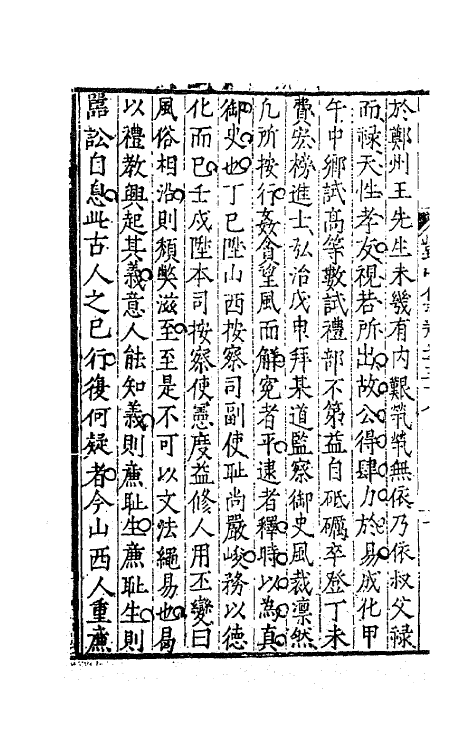 於鄭州王先生未幾有内艱煢煢無依乃依叔父禄
而禄天性孝友視若所出故公得肆力於易成化甲
午中鄉試髙等數試禮部不第益自砥礪卒登丁未
費宏榜進士弘治戊申拜某道監察御史風裁凛然
凡所按行姦貪望風而解寃者平逮者釋時以為真
御史也丁巳陞山西按察司副使耻尚嚴峻務以徳
化而已壬戌陞本司按察使憲度益修人用丕變曰
風俗相沿則頽獘滋至至是不可以文法繩易也曷
以禮教興起其義意人能知義則亷耻生亷耻生則
嚚訟自息此古人之已行復何疑者今山西人重亷